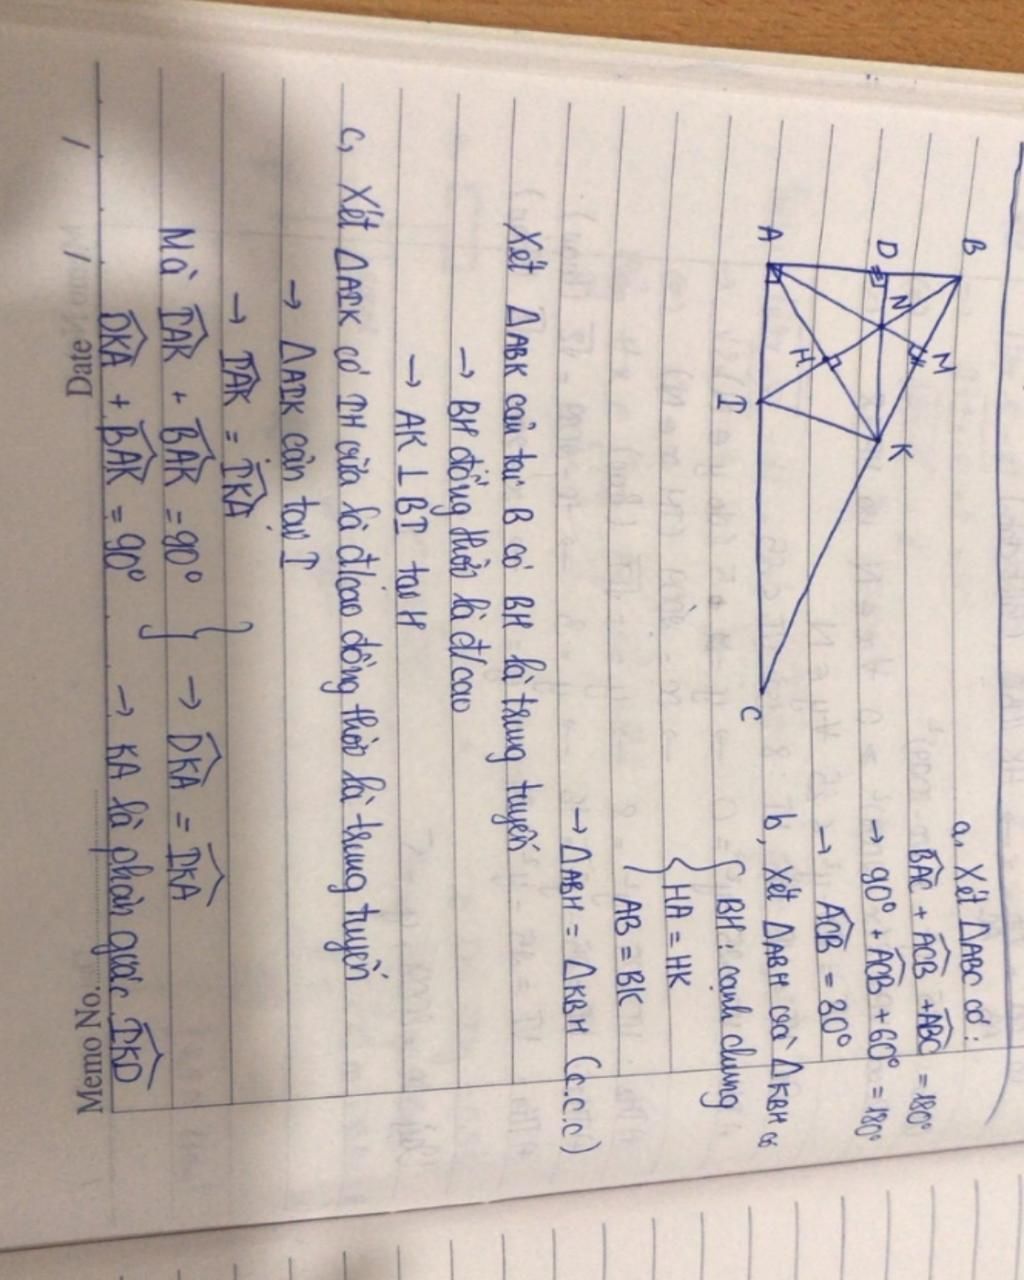 B
D
N
M
A
H
K
I
C
a, Xét ΔABC có:
BAC + ACB + ABC = 180°
→ 90° + ACB + 60° = 180°
→ ACB = 30°
b, Xét ΔABH và ΔKBH có
BH: cạnh chung
HA = HK
AB = BK
→ ΔABH = ΔKBH (c.c.c)
Xét ΔABK cân tại B có BH là trung tuyến
→ BH đồng thời là đ/cao
→ AK ⊥ BI tại H
c, Xét ΔAIK có IH vừa là đ/cao đồng thời là trung tuyến
→ ΔAIK cân tại I
→ IAK = IKA
Mà IAK + BAK = 90°
DKA + BAK = 90°
→ DKA = IKA
→ KA là phân giác IKD
Memo No.
Date / /